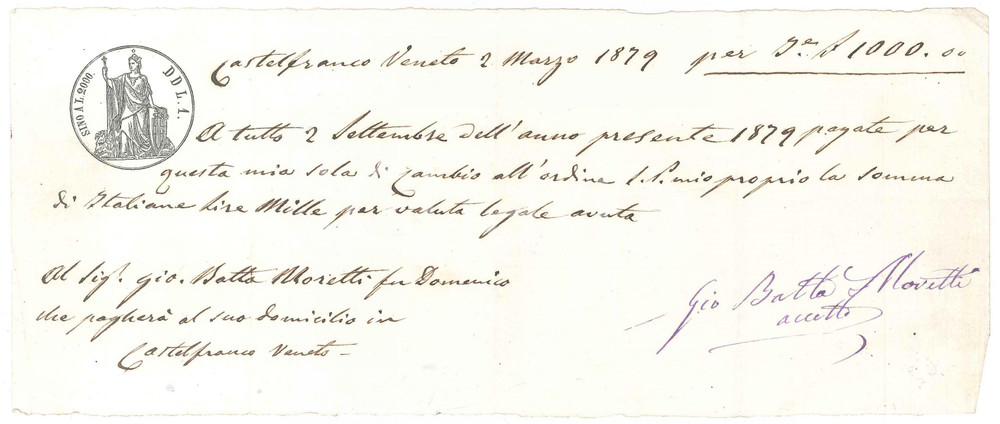 Castelfranco Veneto 2 Marzo 1879 per I.e £ 1000.00
SINO AL 2000.
DDL.1.
A tutto 2 Settembre dell'anno presente 1879 pagate per
questa mia sola di Cambio all'ordine S.P. mio proprio la somma
di Italiane Lire Mille per valuta legale avuta
Al Sigr. Gio. Batta Moretti fu Domenico
che pagherà al suo domicilio in
Castelfranco Veneto -
Gio Batta Moretti
accetto